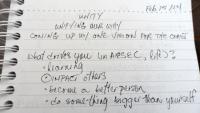 Feb 19/14
UNITY
UNIFYING OUR WAY
COMING UP w/ ONE VISION FOR THE
What drives you (in AIESEC, life)?
- learning
IMPACT others
- become a better person
- do something bigger than yourself